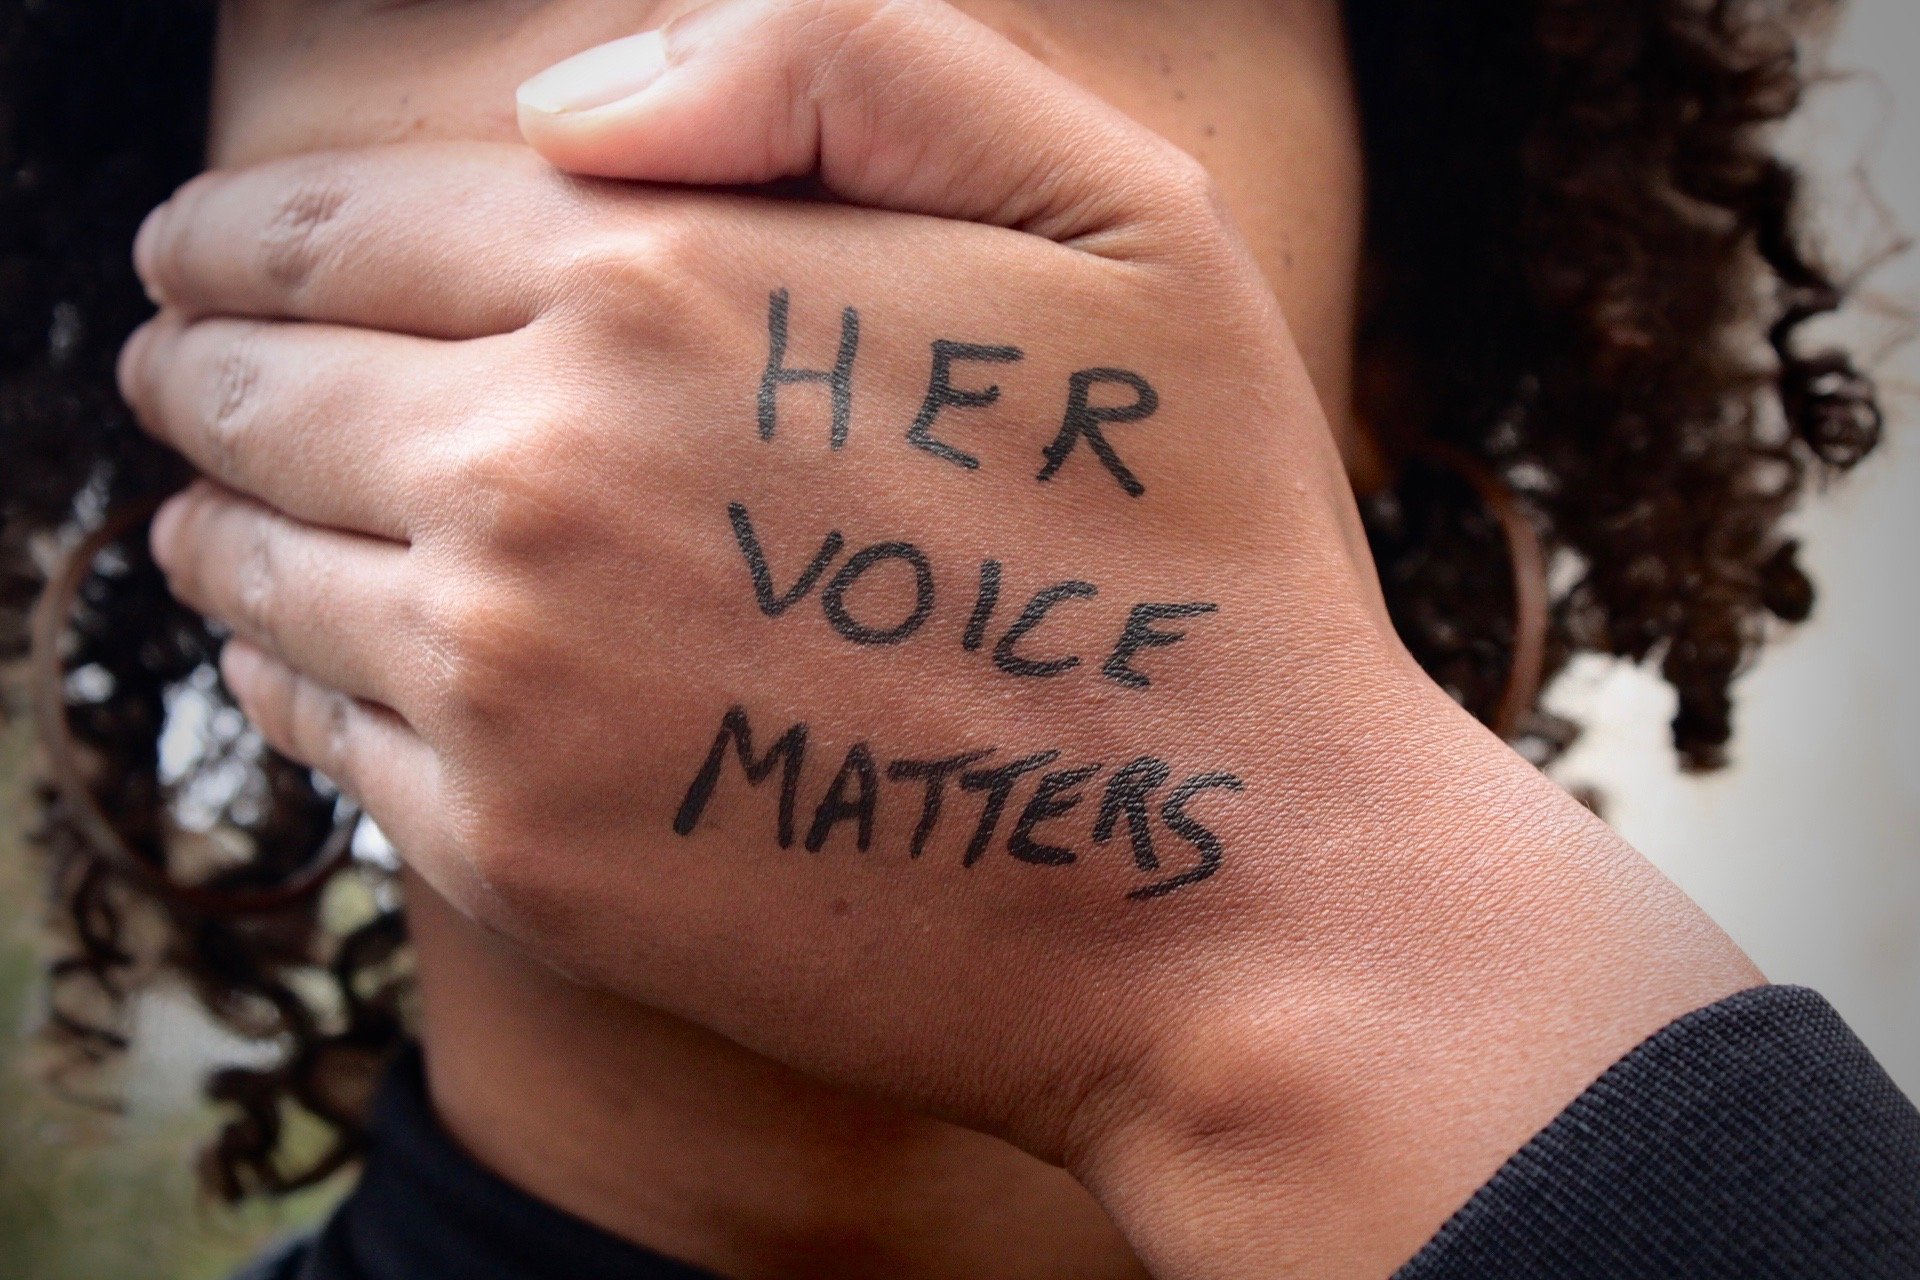 HER
VOICE
MATTERS